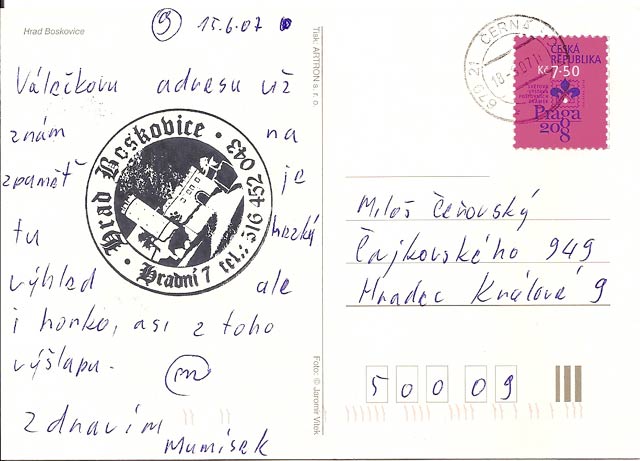 Hrad Boskovice
9 15.6.07
Válečkovu adresu už
znám na
zpaměť je
tu hezký
výhled ale
i horko, asi z toho
výšlapu.
m
Zdravím
Mumísek
Hrad Boskovice • Hradní 7 tel.: 516 452 043 •
Tisk: ARTRON s. r. o
Foto: © Jaromír Vítek
ČERNÁ
18-6-07
679 21
ČESKÁ
REPUBLIKA
Kč 7·50
Praga
2008
Miloš Čeňovský
Čajkovského 949
Hradec Králové 9
500 09